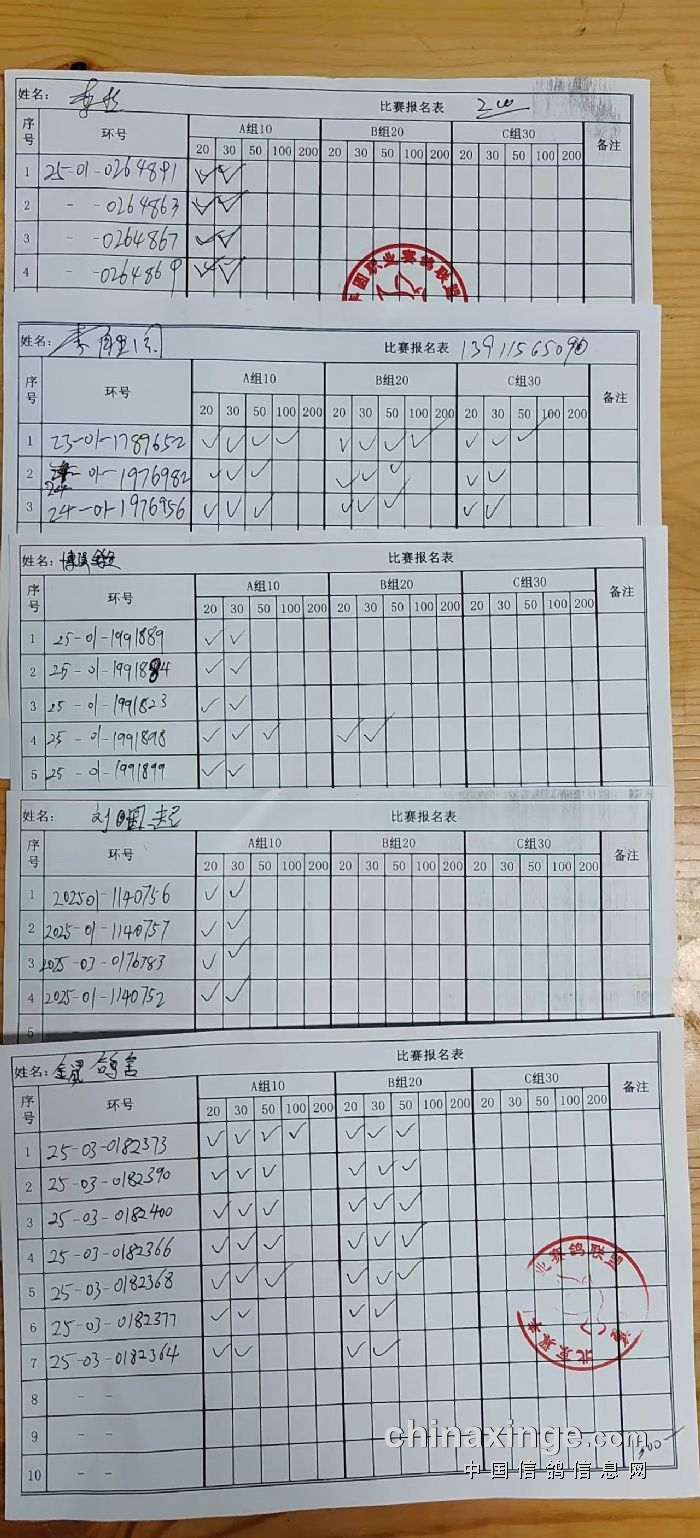 姓名： 比赛报名表 200
序号 环号 A组10 B组20 C组30 备注
20 30 50 100 200 20 30 50 100 200 20 30 50 100 200
1 25-01-0264891 ✓ ✓
2 - -0264863 ✓ ✓
3 - -0264867 ✓ ✓
4 - -0264869 ✓ ✓
职业赛鸽联盟
姓名： 比赛报名表 13911565090
序号 环号 A组10 B组20 C组30 备注
20 30 50 100 200 20 30 50 100 200 20 30 50 100 200
1 23-01-1789652 ✓ ✓ ✓ ✓ ✓ ✓ ✓ ✓ ✓ ✓ ✓
2 24-01-1976982 ✓ ✓ ✓ ✓ ✓ ✓ ✓ ✓
3 24-01-1976956 ✓ ✓ ✓ ✓ ✓ ✓ ✓ ✓
姓名： 比赛报名表
序号 环号 A组10 B组20 C组30 备注
20 30 50 100 200 20 30 50 100 200 20 30 50 100 200
1 25-01-1991889 ✓ ✓
2 25-01-1991884 ✓ ✓
3 25-01-1991823 ✓ ✓
4 25-01-1991898 ✓ ✓ ✓ ✓ ✓
5 25-01-1991899 ✓ ✓
姓名： 刘国起 比赛报名表
序号 环号 A组10 B组20 C组30 备注
20 30 50 100 200 20 30 50 100 200 20 30 50 100 200
1 202501-1140756 ✓ ✓
2 2025-01-1140757 ✓ ✓
3 2025-03-0176783 ✓ ✓
4 2025-01-1140752 ✓ ✓
5
姓名： 鸽舍 比赛报名表
序号 环号 A组10 B组20 C组30 备注
20 30 50 100 200 20 30 50 100 200 20 30 50 100 200
1 25-03-0182373 ✓ ✓ ✓ ✓ ✓ ✓ ✓
2 25-03-0182390 ✓ ✓ ✓ ✓ ✓ ✓
3 25-03-0182400 ✓ ✓ ✓ ✓ ✓ ✓
4 25-03-0182366 ✓ ✓ ✓ ✓ ✓ ✓
5 25-03-0182368 ✓ ✓ ✓ ✓ ✓ ✓
6 25-03-0182377 ✓ ✓ ✓ ✓
7 25-03-0182364 ✓ ✓ ✓ ✓
8 - -
9 - -
10 - -
业赛鸽联盟
北京
chinaxinge.com
中国信鸽信息网